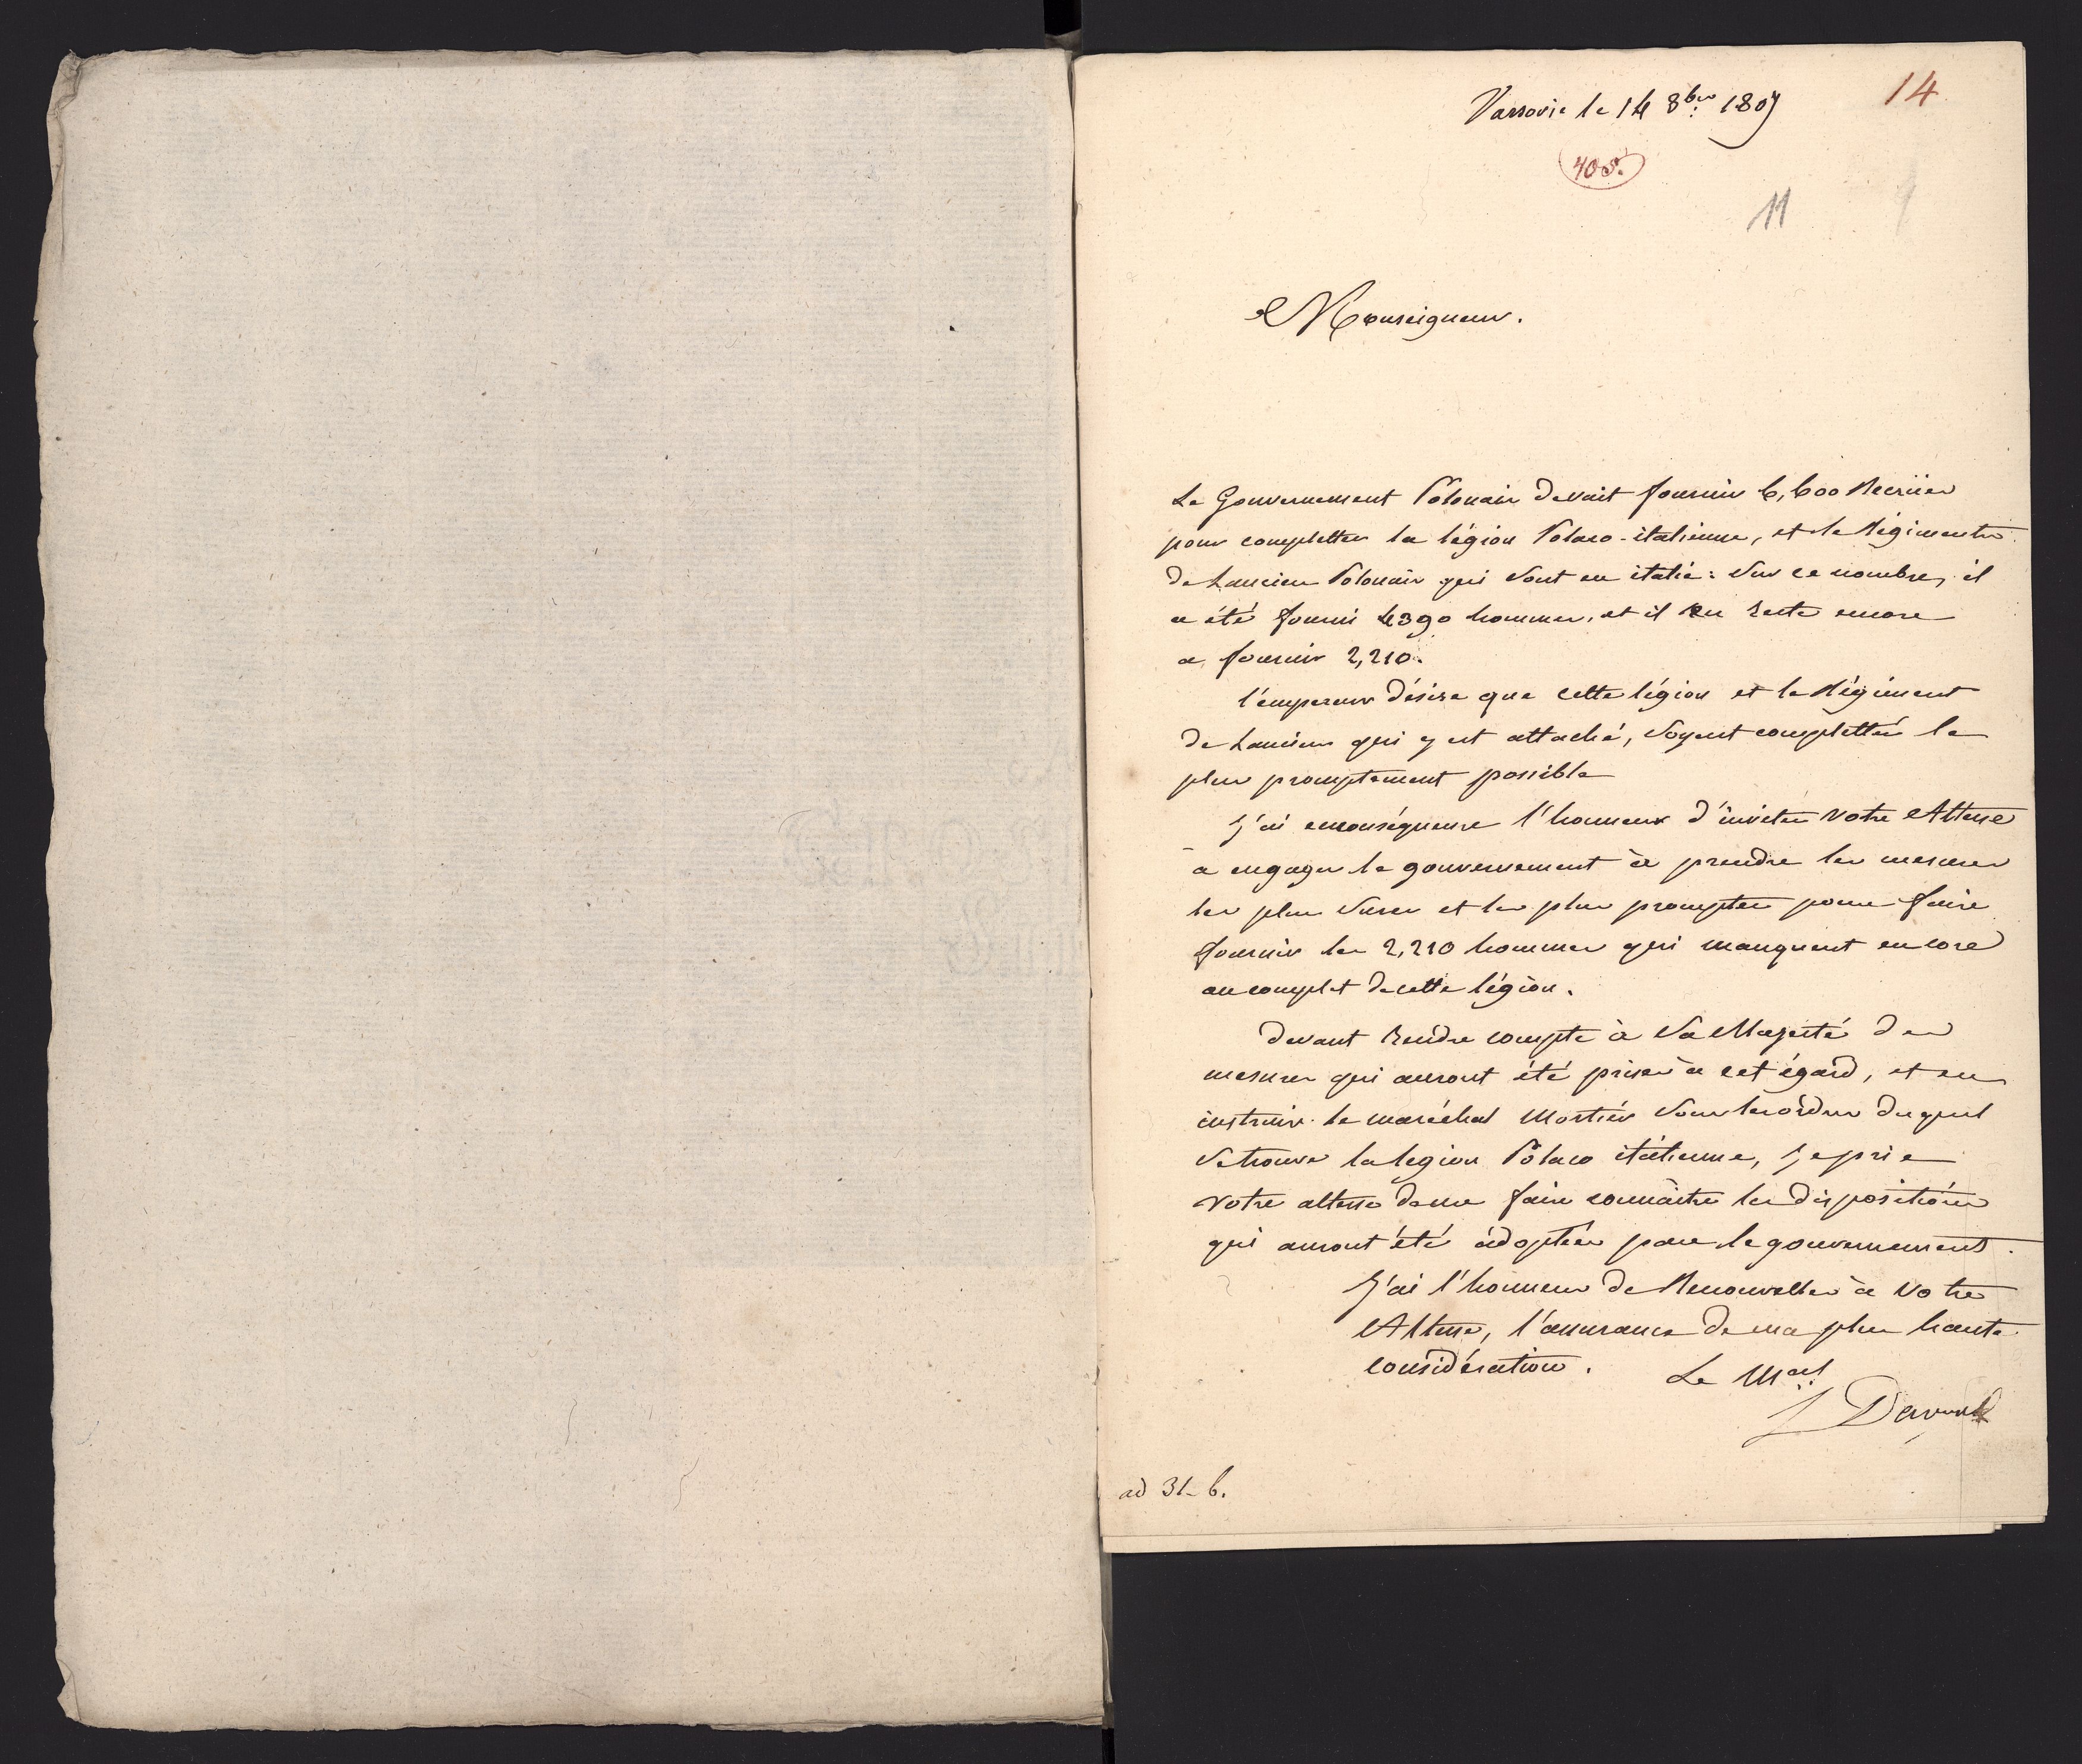 Varsovie le 14 8bre 1807
14
405.
11
Monseigneur.
Le Gouvernement Polonais devait fournir 6,600 Recrües
pour completter la légion Polaco-italienne, et le Régiment
de Lanciers Polonais qui sont en italie: sur ce nombre, il
a été fourni 4390 hommes, et il en reste encore
a fournir 2,210.
l'empereur désire que cette légion et le Régiment
de Lanciers qui y est attaché, soyent complettés le
plus promptement possible
J'ai enconséquence l'honneur d'inviter votre Altesse
a engager le gouvernement à prendre les mesures
les plus sures et les plus promptes pour faire
fournir les 2,210 hommes qui manquent encore
au complet de cette légion.
devant rendre compte à Sa Majesté des
mesures qui auront été prises à cet égard, et en
instruire le maréchal Mortier sous les ordres duquel
se trouve la legion Polaco itálienne, je prie
votre altesse de me faire connaitre les dispositions
qui auront été adoptées par le gouvernement.
J'ai l'honneur de Renouveller à Votre
Altesse, l'assurance de ma plus haute
considération. Le Mal
L Davout
ad 31-6.